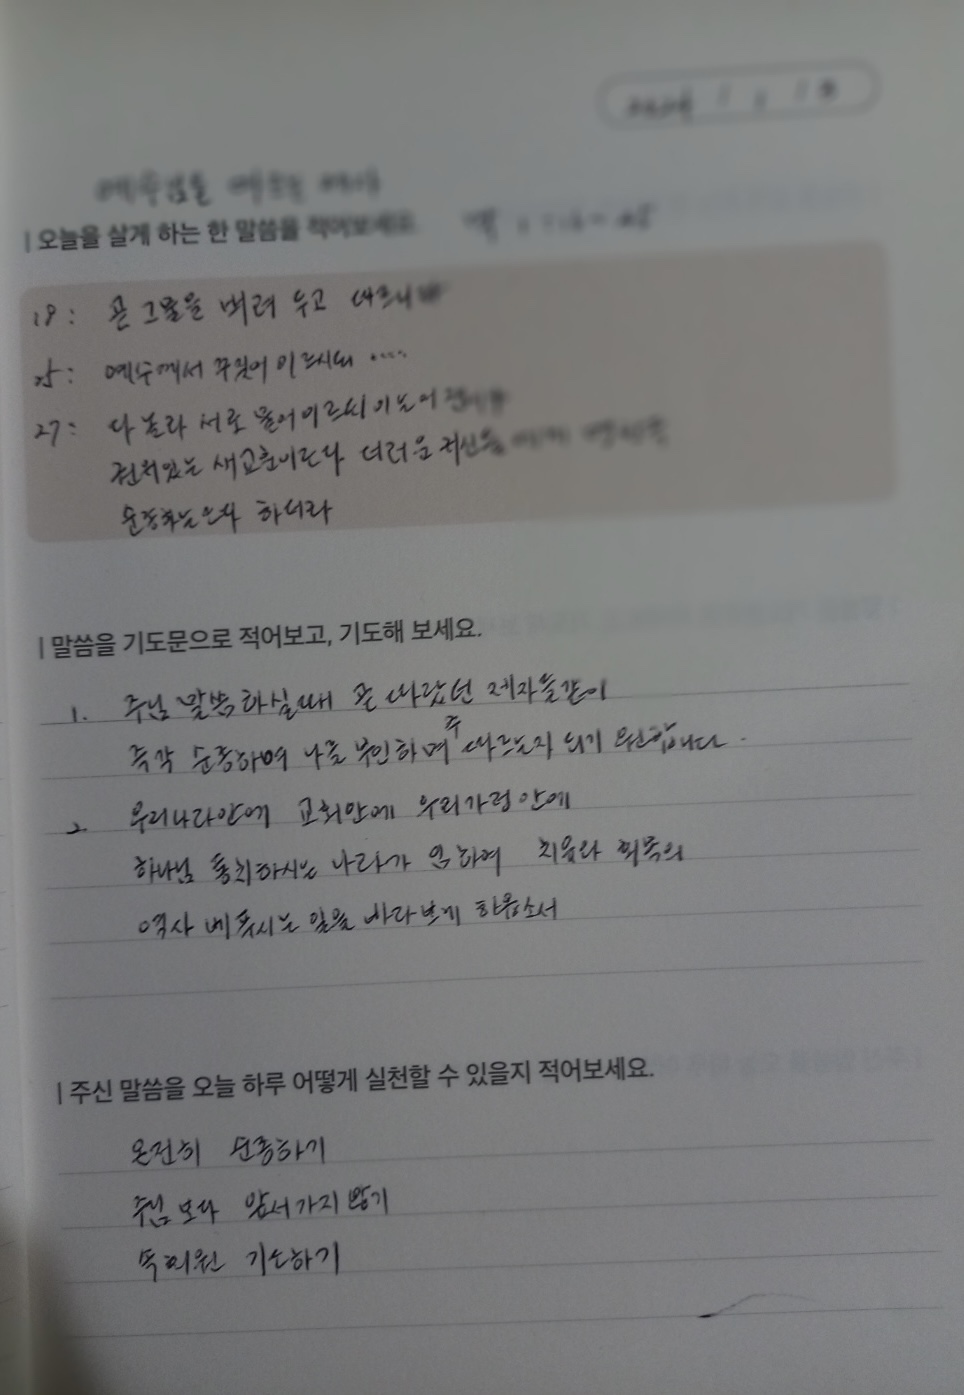 오늘을 살게 하는 한 말씀을 적어보세요
18: 곧 그물을 버려 두고 따르니라
25: 예수께서 꾸짖어 이르시되 ....
27: 다 놀라 서로 물어이르되 이는어
권위있는 새교훈이로다 더러운 귀신을
순종하는도다 하더라
말씀을 기도문으로 적어보고, 기도해 보세요.
1. 주님 말씀하실때 곧 따랐던 제자들같이
즉각 순종하여 나를 부인하며 주 따르는자 되기 원합니다.
2. 우리나라안에 교회안에 우리가정안에
하나님 통치하시는 나라가 임하여 치유와 회복의
역사 베푸시는 일을 바라보게 하옵소서
주신 말씀을 오늘 하루 어떻게 실천할 수 있을지 적어보세요.
온전히 순종하기
주님보다 앞서가지 않기
속회원 기도하기